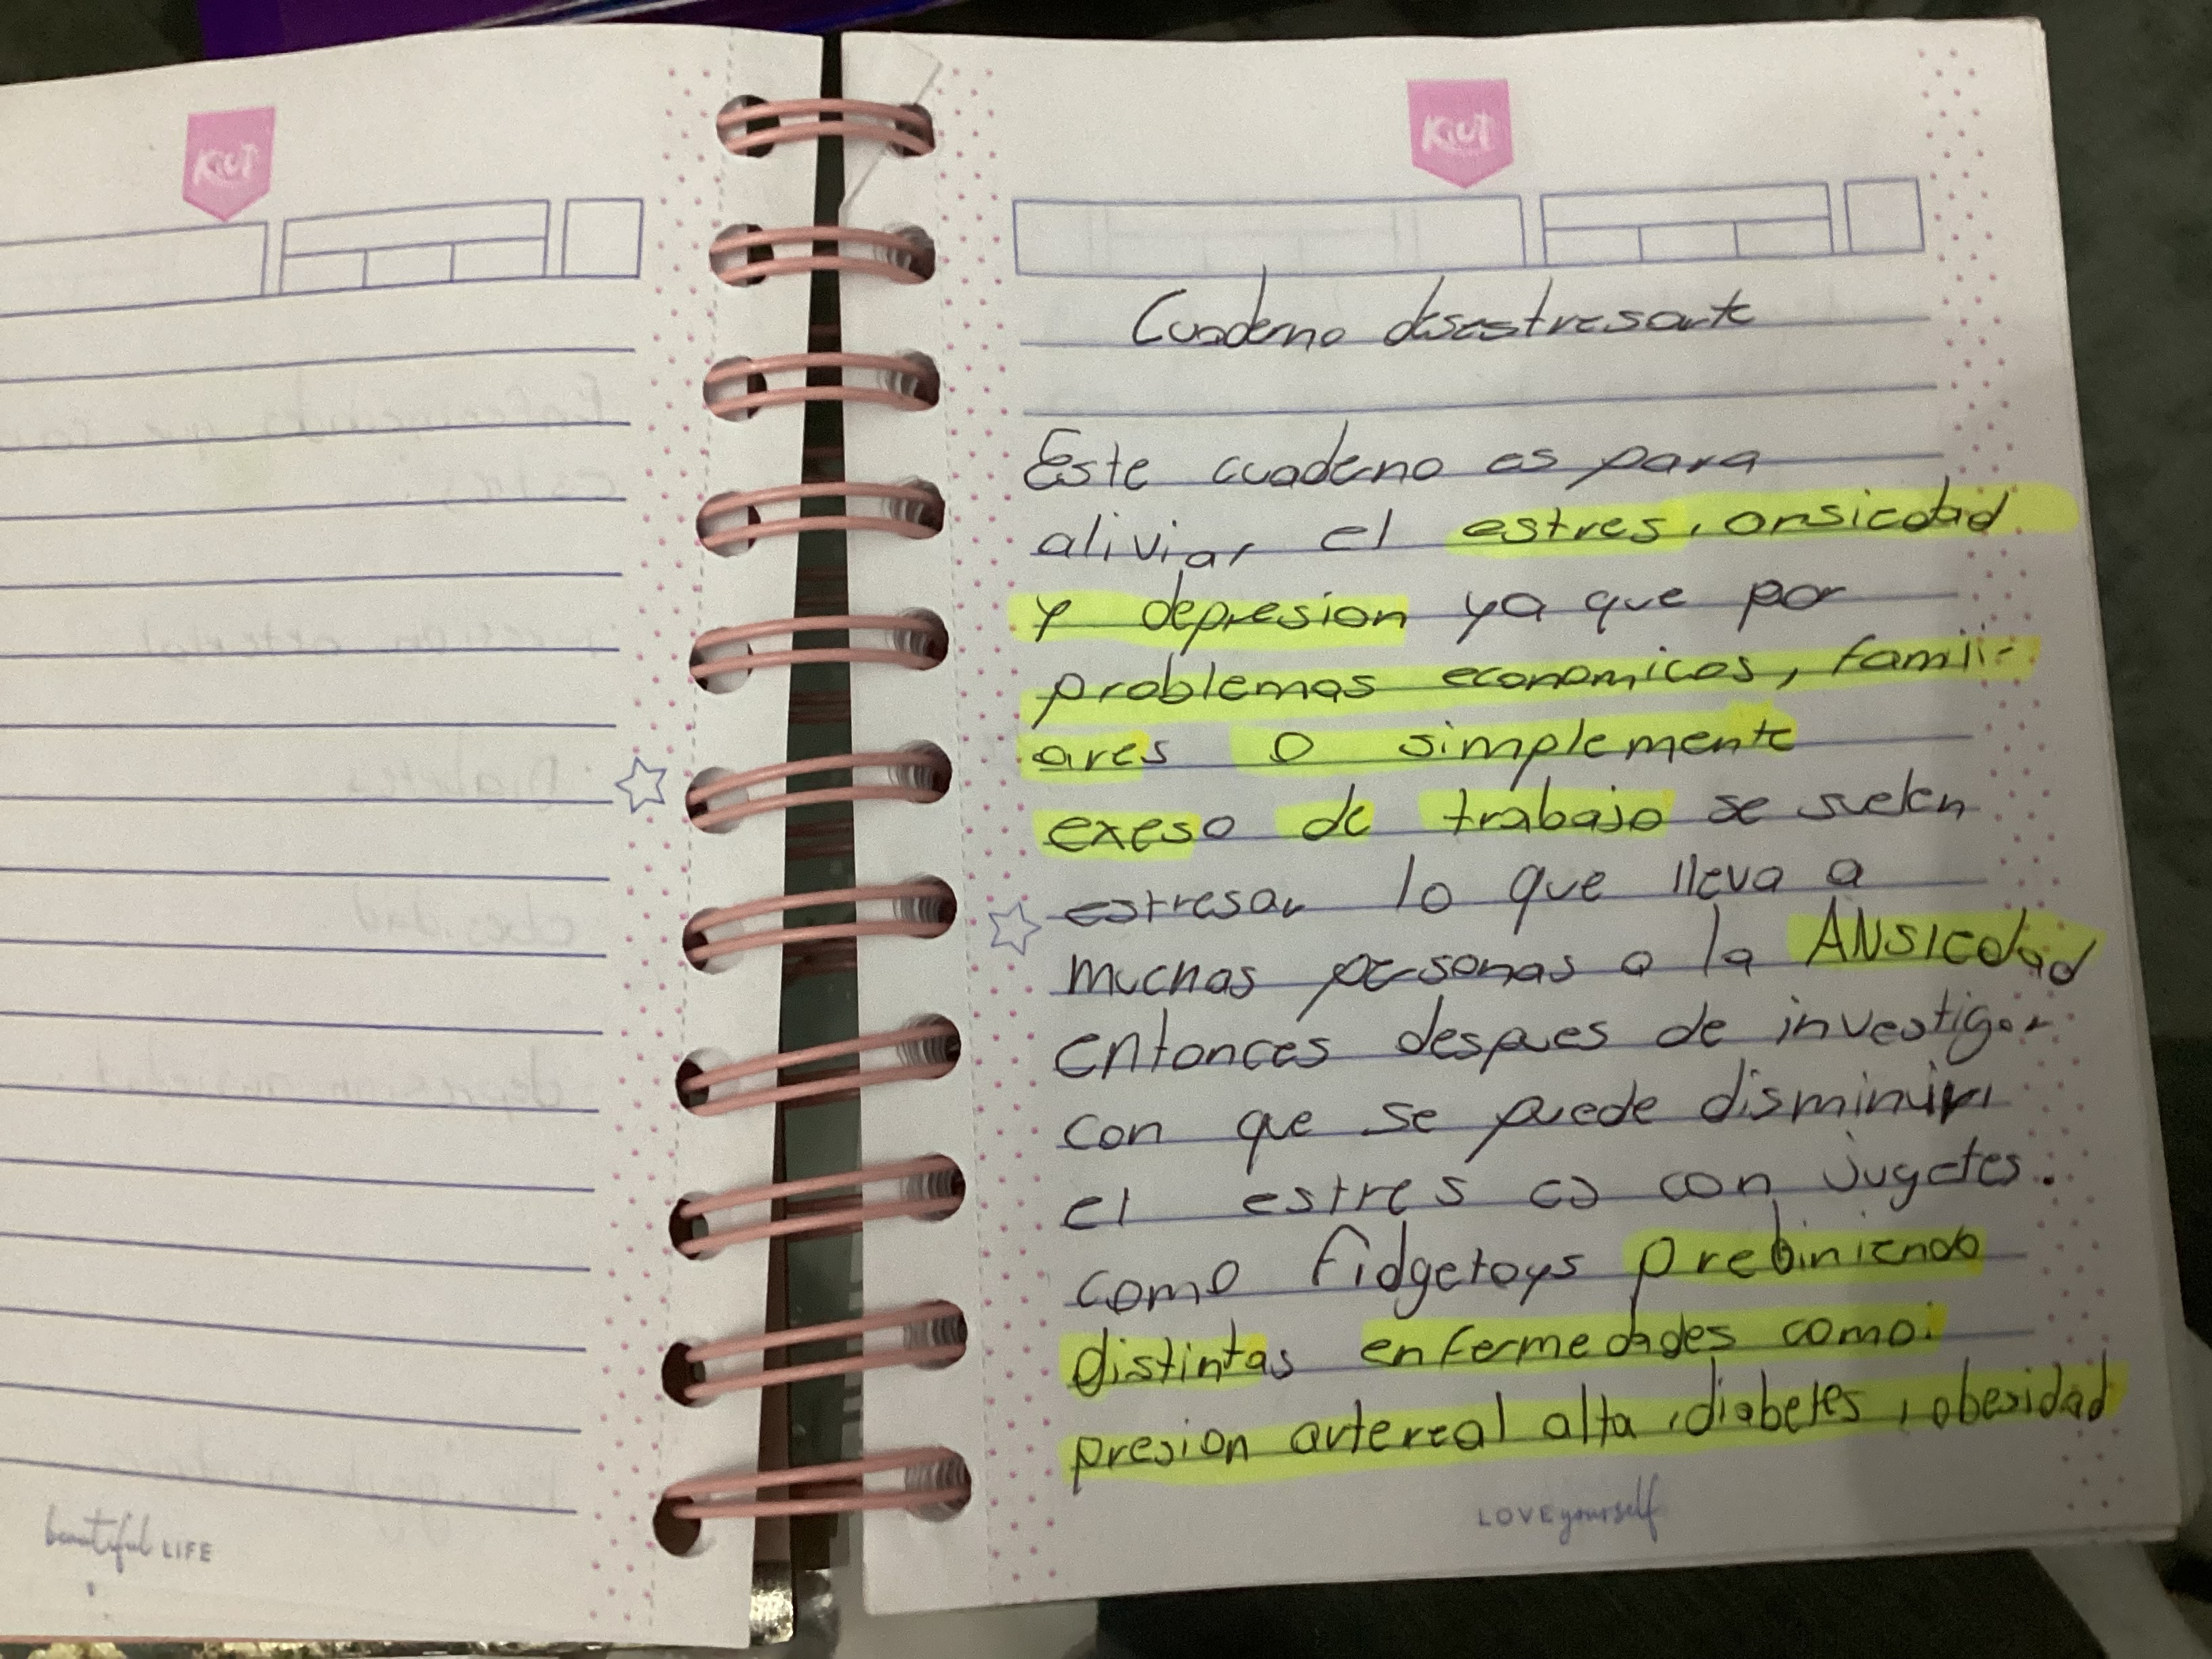 KIUT
beautiful LIFE
KIUT
Cuaderno desestresante
Este cuaderno es para
aliviar el estres, ansiedad
y depresion ya que por
problemas economicos, famili-
ares o simplemente
exeso de trabajo se suelen
estresar lo que lleva a
muchas personas a la ANSIEDAD
entonces despues de investigar
con que se puede disminuir
el estres es con jugetes.
como fidgetoys prebiniendo
distintas enfermedades como:
presion artereal alta, diabetes, obesidad
LOVE yourself